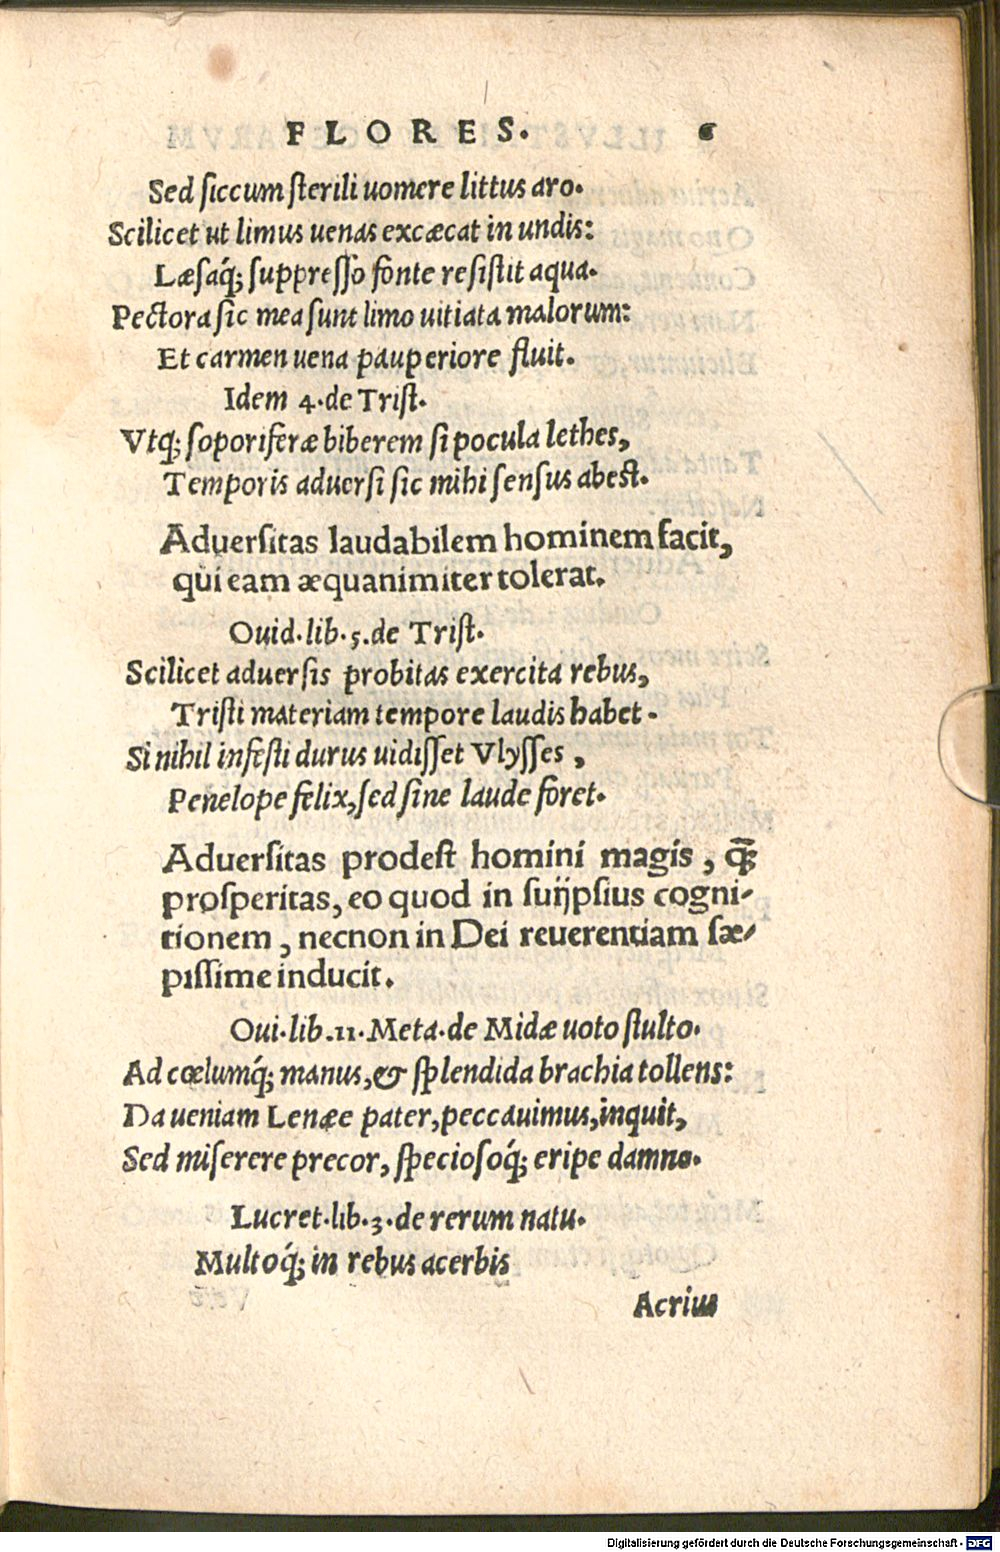 FLORES. 6
Sed siccum sterili uomere littus aro.
Scilicet ut limus uenas excæcat in undis:
Læsaq́; suppresso fonte resistit aqua.
Pectora sic mea sunt limo uitiata malorum:
Et carmen uena pauperiore fluit.
Idem 4. de Trist.
Vtq; soporiferæ biberem si pocula lethes,
Temporis aduersi sic mihi sensus abest.
Aduersitas laudabilem hominem facit,
qui eam æquanimiter tolerat.
Ouid. lib. 5. de Trist.
Scilicet aduersis probitas exercita rebus,
Tristi materiam tempore laudis habet.
Si nihil infesti durus uidisset Vlysses,
Penelope felix, sed sine laude foret.
Aduersitas prodest homini magis, q̃;
prosperitas, eo quod in suijpsius cogni-
tionem, necnon in Dei reuerentiam sæ-
pissime inducit.
Oui. lib. 11. Meta. de Midæ uoto stulto.
Ad cœlumq́; manus, & splendida brachia tollens:
Da ueniam Lenæe pater, peccauimus, inquit,
Sed miserere precor, speciosoq́; eripe damno.
Lucret. lib. 3. de rerum natu.
Multoq́; in rebus acerbis
Acrius
Digitalisierung gefördert durch die Deutsche Forschungsgemeinschaft - DFG